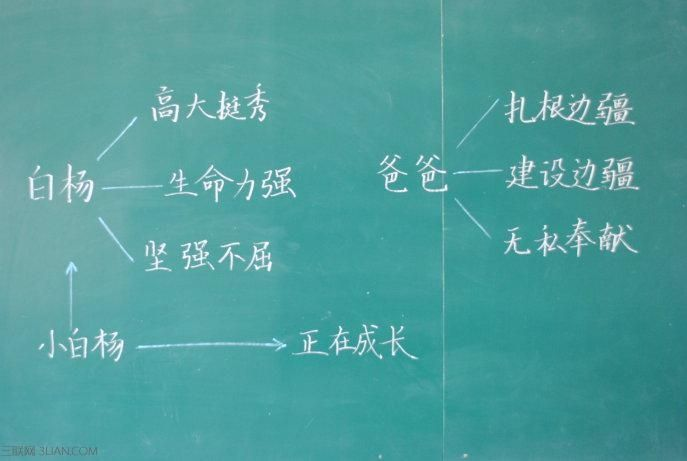 高大挺秀
白杨
生命力强
坚强不屈
小白杨
正在成长
爸爸
扎根边疆
建设边疆
无私奉献
三联网 3LIAN.COM